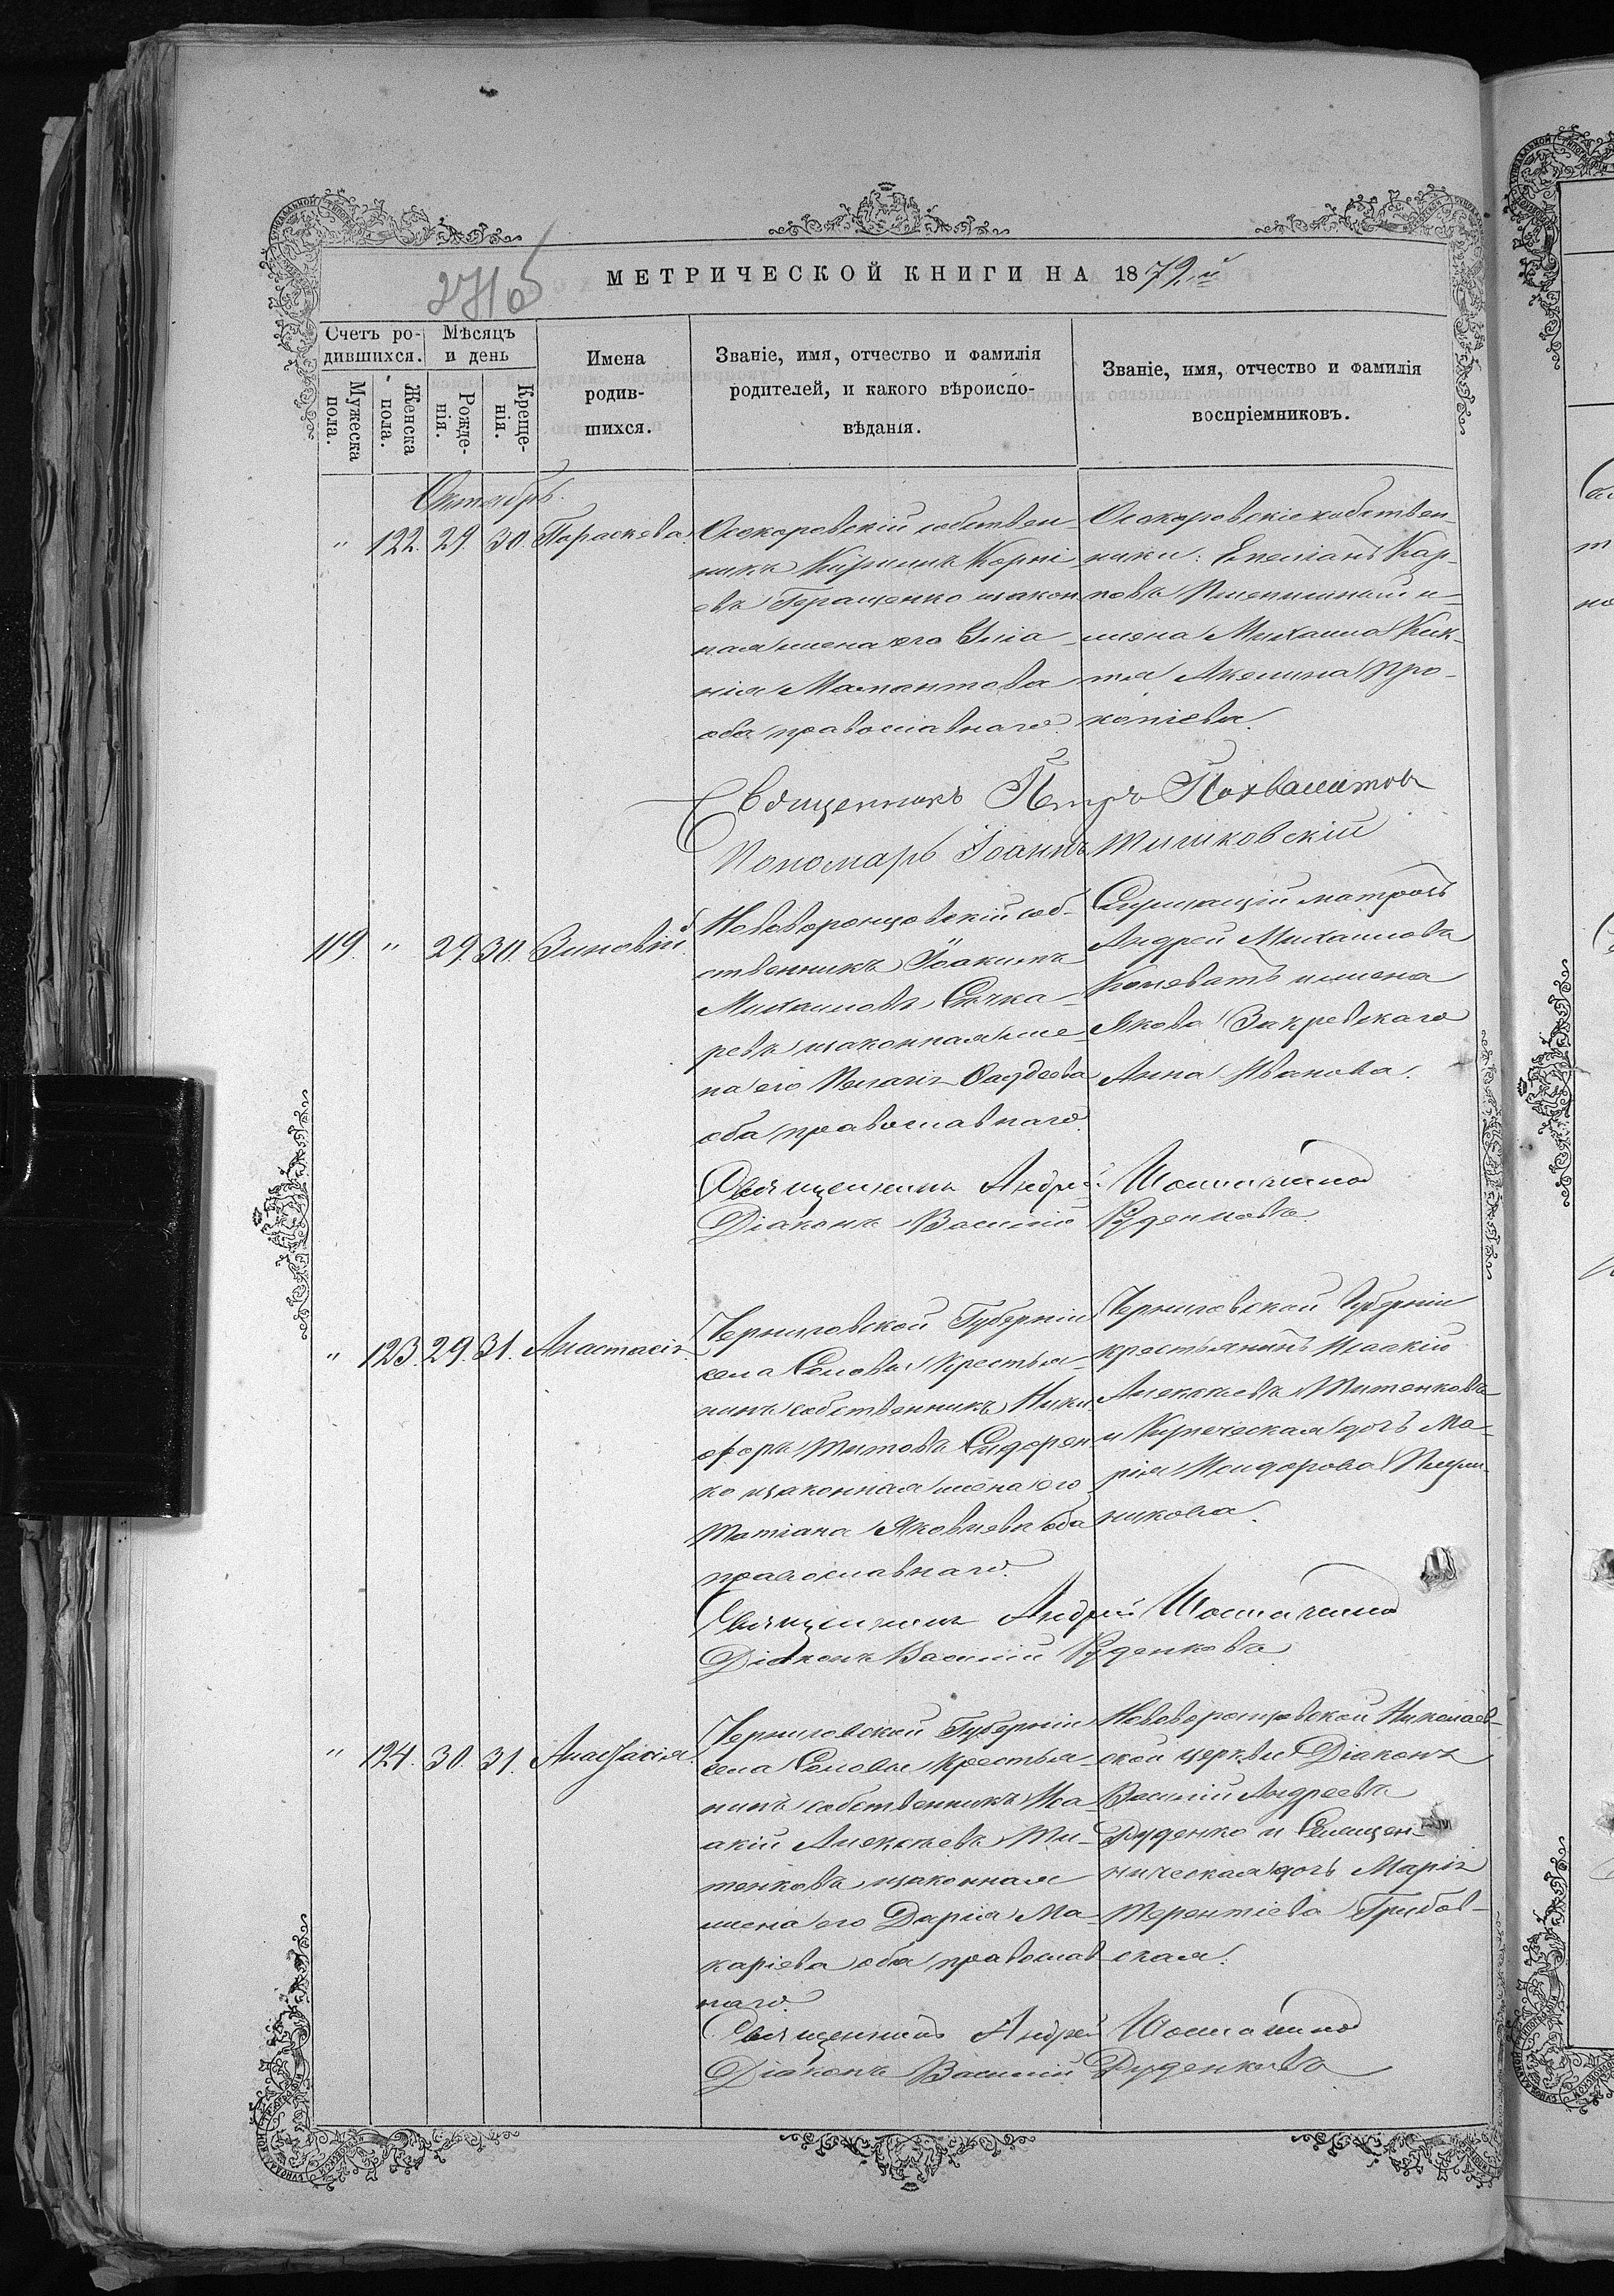 271об
МЕТРИЧЕСКОЙ КНИГИ НА 1879й
Счетъ ро-
дившихся.
Мужеска пола.
Женска пола.
Мѣсяцъ
и день
Рожде-
нія.
Креще-
нія.
Имена
родив-
шихся.
Званіе, имя, отчество и фамилія
родителей, и какого вѣроиспо-
вѣданія.
Званіе, имя, отчество и фамилія
воспріемниковъ.
Октябрь.
" 122. 29. 30. Параскева.
Осокоровскій собствен-
никъ Кириллъ Корні
евъ Геращенко законн
ная жена его Ѳеа
нія Мамантова
оба православнаго.
Осокоровскіе собствен-
ники: Емеліанъ Кар-
повъ Пшеничный и
жена Михаила Кик-
тя Акилина Про-
копіева.
Священникъ Петръ Похвалитовъ
Пономарь Іоаннъ Тишковскій
119. " 29. 30. Зиновій.
Нововоронцовскій соб-
ственникъ Іоакимъ
Михаиловъ Сичка-
ревъ законная же-
на его Пелагія Фадѣева
оба православнаго.
Служащій матросъ
Андрей Михаиловъ
и жена
Якова Закревскаго
Анна Иванова.
Священникъ Андрей
Діаконъ Василій Руденковъ.
" 123. 29. 31. Анастасія.
Черниговской Губерніи
села Крестья-
нинъ собственникъ Ники-
форъ Титовъ Сидорен-
ко законная жена его
Татіана Яковлева оба
православнаго.
Черниговской Губерніи
крестьянинъ Исаакій
Алексѣевъ Титенковъ
и Купеческая дочь Ма-
рія Исидорова
никова.
Священникъ Андрей
Діаконъ Василій Руденковъ
" 124. 30. 31. Анастасія.
Черниговской Губерніи
села Крестья-
нинъ собственникъ Иса-
акій Алексѣевъ Ти-
тенковъ законная
жена его Дарія Ма-
каріева оба православ-
наго.
Нововоронцовской Николаев-
ской церкви Діаконъ
Василій Андреевъ
Руденко и Священ-
ническая дочь Марія
Терентіева Грибов-
ская.
Священникъ Андрей
Діаконъ Василій Руденковъ